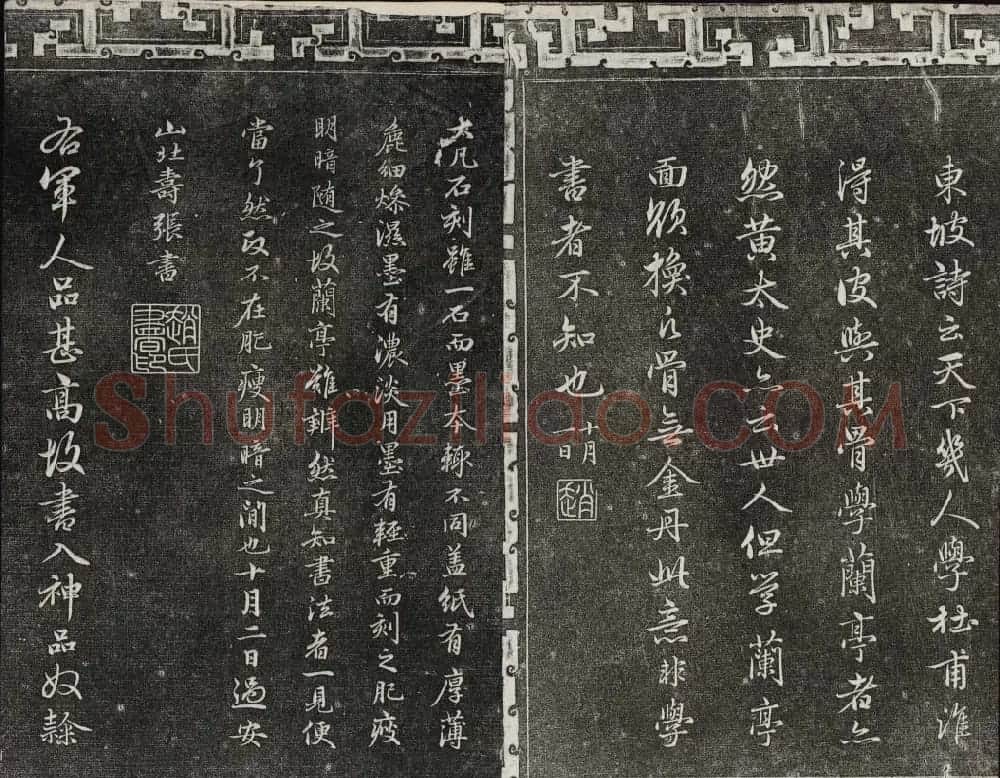 東坡詩云天下幾人學杜甫誰
得其皮與其骨學蘭亭者亦
然黄太史亦云世人但學蘭亭
面欲換凡骨無金丹此意非學
書者不知也十一月
一日
趙
大凡石刻雖一石而墨本輒不同盖紙有厚薄
麁細燥濕墨有濃淡用墨有輕重而刻之肥瘦
明暗隨之故蘭亭難辨然真知書法者一見便
當了然政不在肥瘦明暗之間也十月二日過安
山北壽張書
趙氏
書印
右軍人品甚高故書入神品奴隸
Shufaziliao.COM